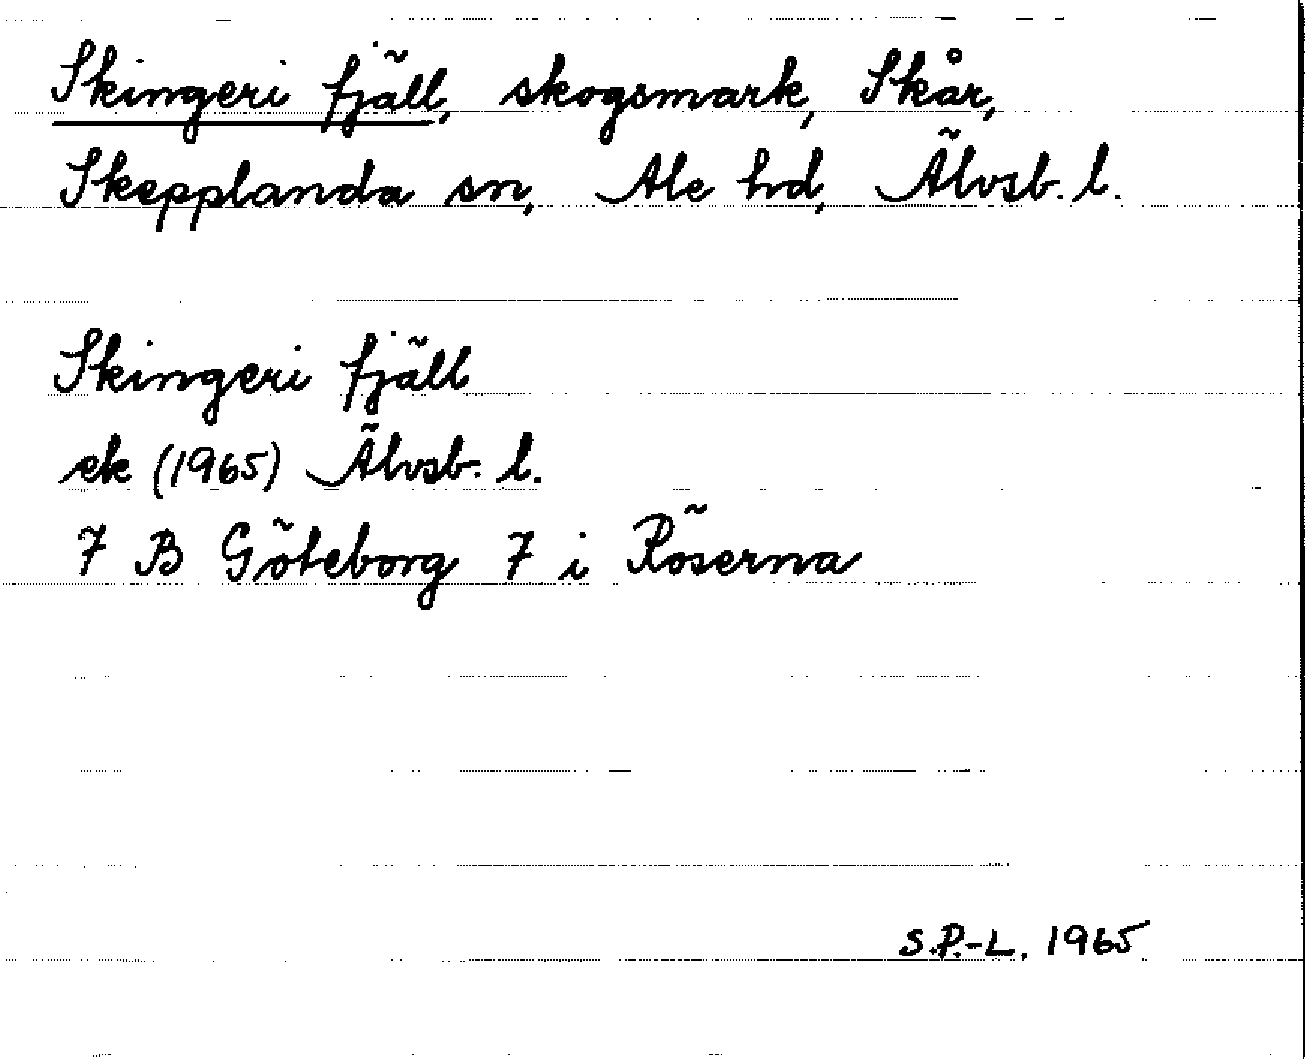 Skingeri fjäll, skogsmark, Skår,
Skepplanda sn, Ale hd, Älvsb. l.
Skingeri fjäll
ek (1965) Älvsb. l.
7 B Göteborg 7 i Röserna
S.P.-L. 1965